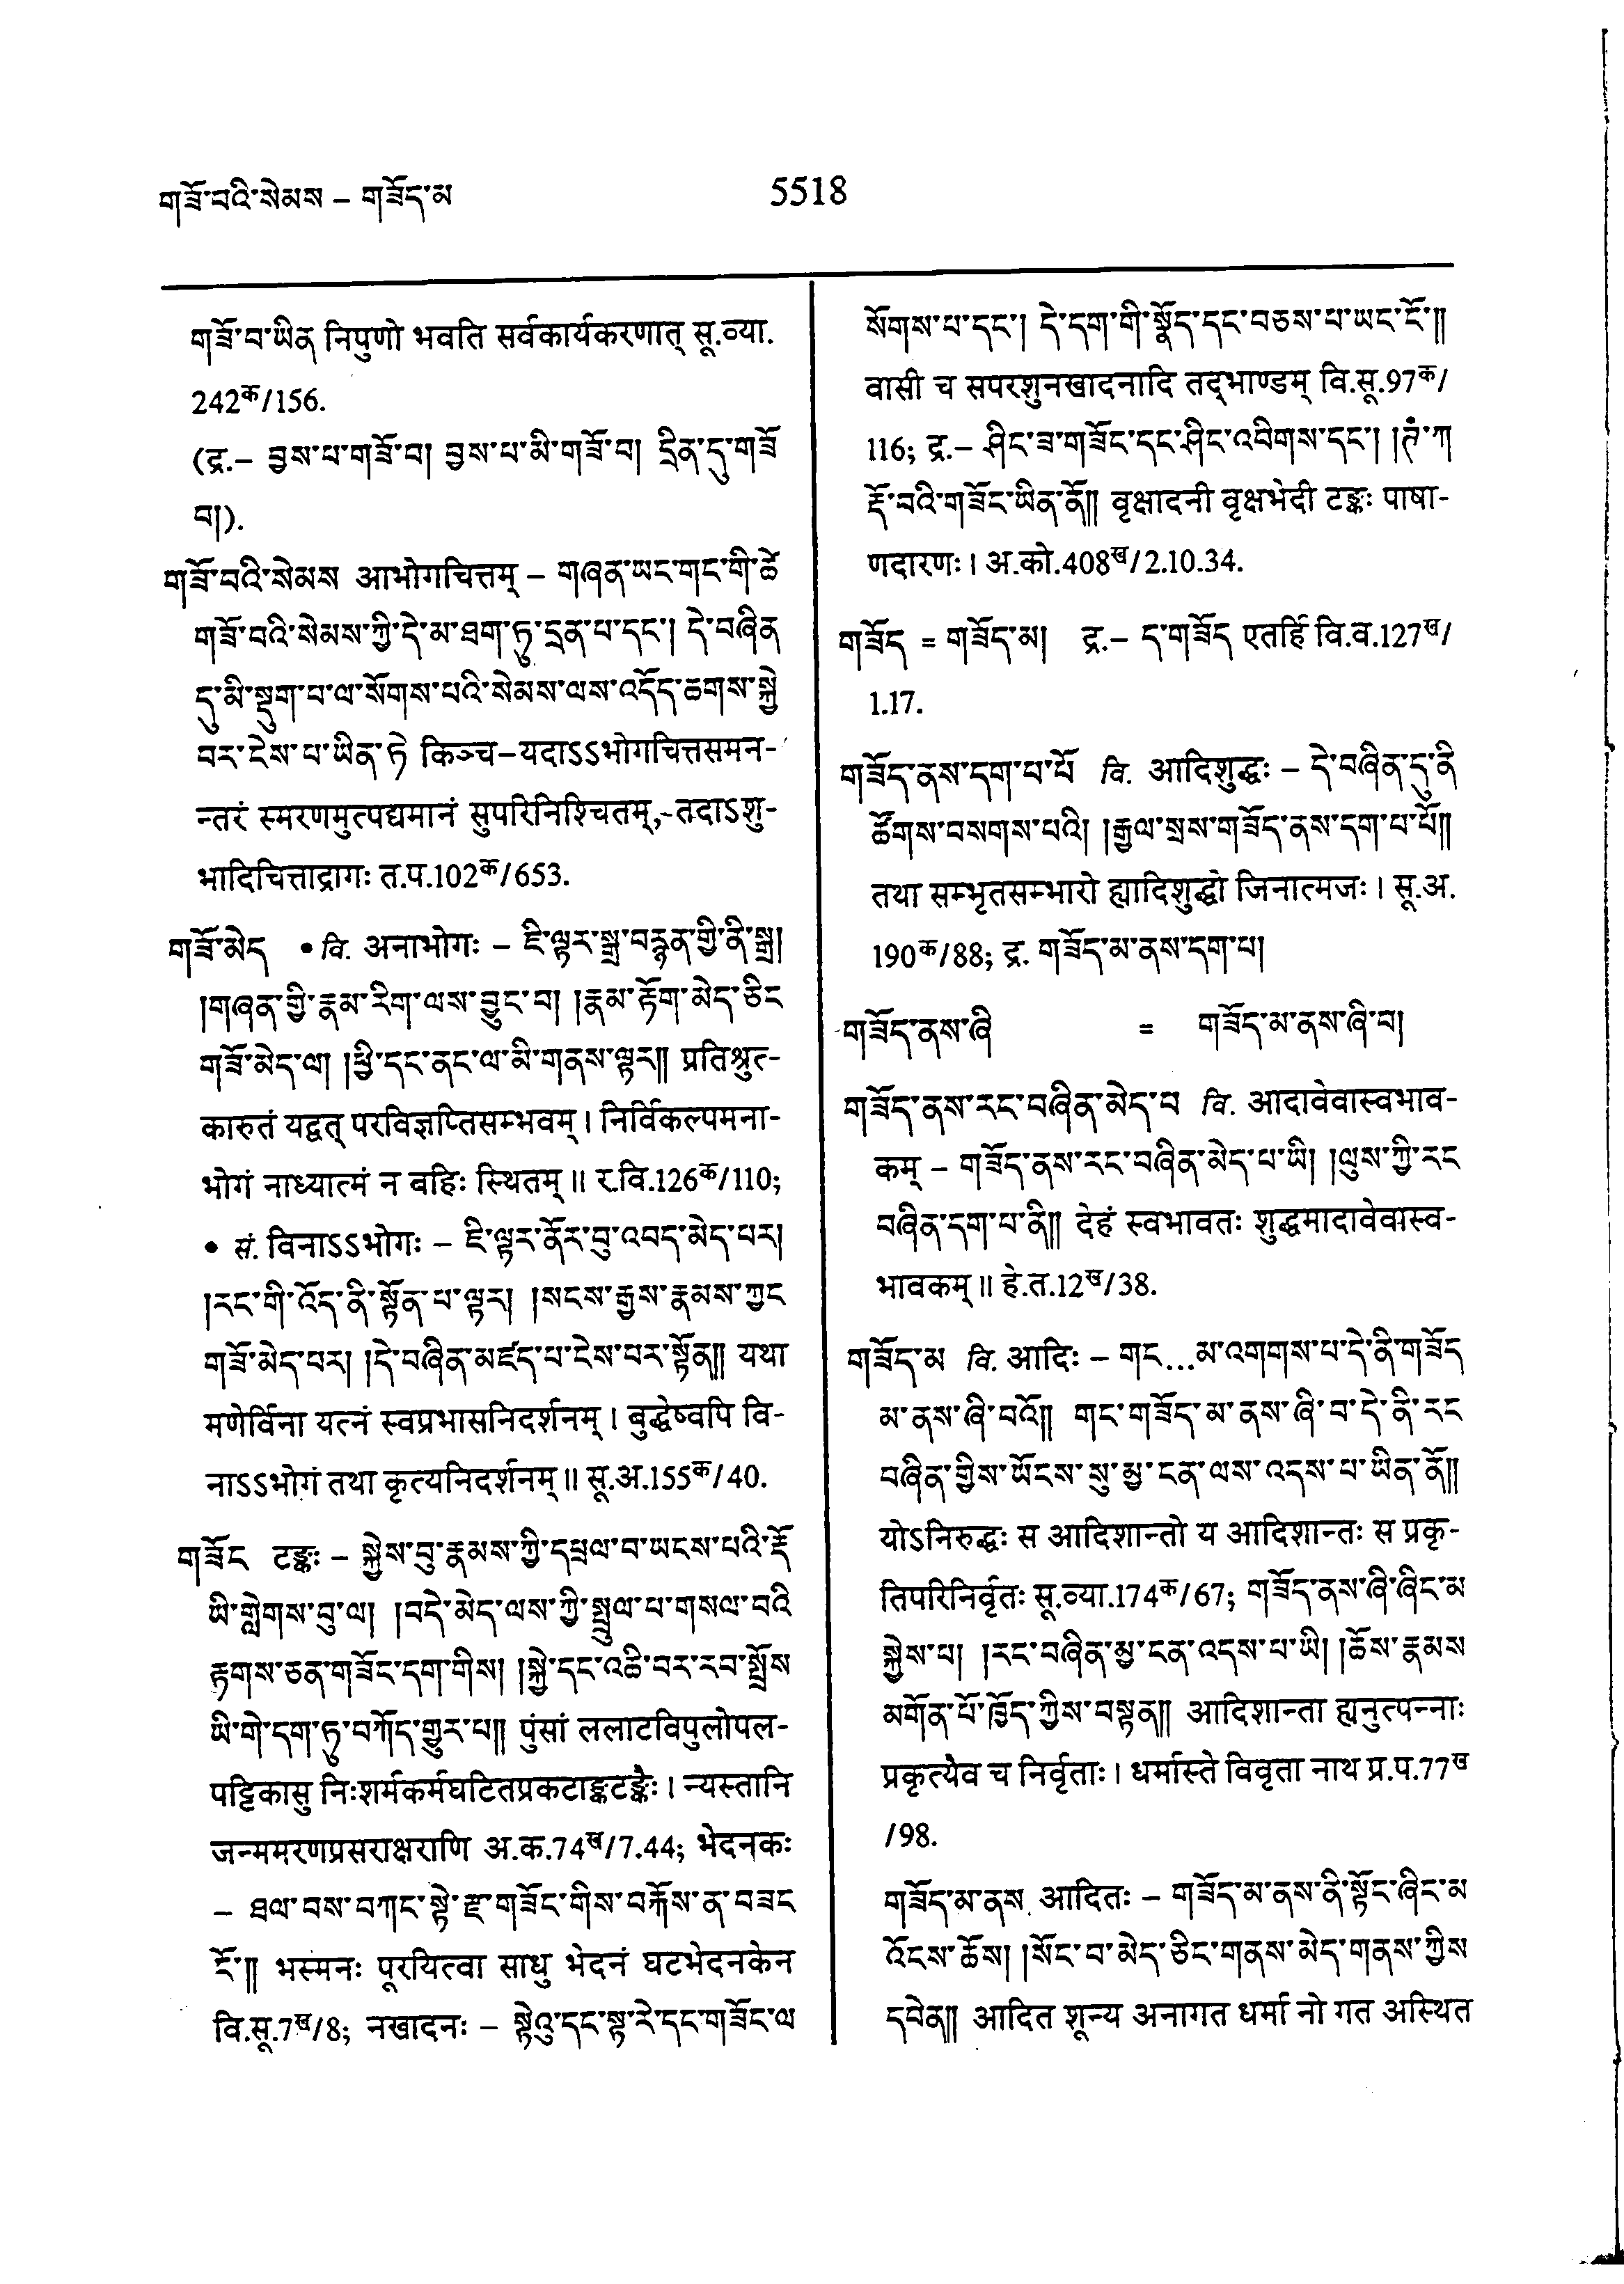 གཟོ་བའི་སེམས – གཟོད་མ
5518
གཟོ་བ་ཡིན निपुणो भवति सर्वकार्यकरणात् सू.व्या.
242क/156.
(द्र.– བྱས་པ་གཟོ་བ། བྱས་པ་མི་གཟོ་བ། དྲིན་དུ་གཟོ
བ།).
གཟོ་བའི་སེམས आभोगचित्तम् – གཞན་ཡང་གང་གི་ཚེ
གཟོ་བའི་སེམས་ཀྱི་དེ་མ་ཐག་ཏུ་དྲན་པ་དང་། དེ་བཞིན
དུ་མི་སྡུག་པ་ལ་སོགས་པའི་སེམས་ལས་འདོད་ཆགས་སྐྱེ
བར་ངེས་པ་ཡིན་ཏེ किञ्च–यदाऽऽभोगचित्तसमन-
न्तरं स्मरणमुत्पद्यमानं सुपरिनिश्चितम्,-तदाऽशु-
भादिचित्ताद्रागः त.प.102क/653.
གཟོ་མེད • वि. अनाभोगः – ཇི་ལྟར་སྒྲ་བརྙན་གྱི་ནི་སྒྲ།
།གཞན་གྱི་རྣམ་རིག་ལས་བྱུང་བ། །རྣམ་རྟོག་མེད་ཅིང
གཟོ་མེད་ལ། །ཕྱི་དང་ནང་ལ་མི་གནས་ལྟར།། प्रतिश्रुत्-
कारुतं यद्वत् परविज्ञप्तिसम्भवम्। निर्विकल्पमना-
भोगं नाध्यात्मं न बहिः स्थितम्॥ र.वि.126क/110;
• सं. विनाऽऽभोगः – ཇི་ལྟར་ནོར་བུ་འབད་མེད་པར།
།རང་གི་འོད་ནི་སྟོན་པ་ལྟར། །སངས་རྒྱས་རྣམས་ཀྱང
གཟོ་མེད་པར། །དེ་བཞིན་མཛད་པ་ངེས་པར་སྟོན།། यथा
मणेर्विना यत्नं स्वप्रभासनिदर्शनम्। बुद्धेष्वपि वि-
नाऽऽभोगं तथा कृत्यनिदर्शनम्॥ सू.अ.155क/40.
གཟོང टङ्कः – སྐྱེས་བུ་རྣམས་ཀྱི་དཔྲལ་བ་ཡངས་པའི་རྡོ
ཡི་གླེགས་བུ་ལ། །བདེ་མེད་ལས་ཀྱི་སྤྲུལ་པ་གསལ་བའི
རྟགས་ཅན་གཟོང་དག་གིས། །སྐྱེ་དང་འཆི་བར་རབ་སྤྲོས
ཡི་གེ་དག་ཏུ་བཀོད་གྱུར་པ།། पुंसां ललाटविपुलोपल-
पट्टिकासु निःशर्मकर्मघटितप्रकटाङ्कटङ्कैः। न्यस्तानि
जन्ममरणप्रसराक्षराणि अ.क.74ख/7.44; भेदनकः
– ཐལ་བས་བཀང་སྟེ་རྫ་གཟོང་གིས་བརྐོས་ན་བཟང
ངོ་།། भस्मनः पूरयित्वा साधु भेदनं घटभेदनकेन
वि.सू.7ख/8; नखादनः – སྟེའུ་དང་སྟ་རེ་དང་གཟོང་ལ
སོགས་པ་དང་། དེ་དག་གི་སྣོད་དང་བཅས་པ་ཡང་ངོ་།།
वासी च सपरशुनखादनादि तद्भाण्डम् वि.सू.97क/
116; द्र.– ཤིང་ཟ་གཟོང་དང་ཤིང་འབིགས་དང་། །ཊཾ་ཀ
རྡོ་བའི་གཟོང་ཡིན་ནོ།། वृक्षादनी वृक्षभेदी टङ्कः पाषा-
णदारणः। अ.को.408ख/2.10.34.
གཟོད = གཟོད་མ། द्र.– ད་གཟོད एतर्हि वि.व.127ख/
1.17.
གཟོད་ནས་དག་པ་པོ वि. आदिशुद्धः – དེ་བཞིན་དུ་ནི
ཚོགས་བསགས་པའི། །རྒྱལ་སྲས་གཟོད་ནས་དག་པ་པོ།།
तथा सम्भृतसम्भारो ह्यादिशुद्धो जिनात्मजः। सू.अ.
190क/88; द्र. གཟོད་མ་ནས་དག་པ།
གཟོད་ནས་ཞི = གཟོད་མ་ནས་ཞི་བ།
གཟོད་ནས་རང་བཞིན་མེད་པ वि. आदावेवास्वभाव-
कम् – གཟོད་ནས་རང་བཞིན་མེད་པ་ཡི། །ལུས་ཀྱི་རང
བཞིན་དག་པ་ནི།། देहं स्वभावतः शुद्धमादावेवास्व-
भावकम्॥ हे.त.12ख/38.
གཟོད་མ वि. आदिः – གང...མ་འགགས་པ་དེ་ནི་གཟོད
མ་ནས་ཞི་བའོ།། གང་གཟོད་མ་ནས་ཞི་བ་དེ་ནི་རང
བཞིན་གྱིས་ཡོངས་སུ་མྱ་ངན་ལས་འདས་པ་ཡིན་ནོ།།
योऽनिरुद्धः स आदिशान्तो य आदिशान्तः स प्रकृ-
तिपरिनिर्वृतः सू.व्या.174क/67; གཟོད་ནས་ཞི་ཞིང་མ
སྐྱེས་པ། །རང་བཞིན་མྱ་ངན་འདས་པ་ཡི། །ཆོས་རྣམས
མགོན་པོ་ཁྱོད་ཀྱིས་བསྟན།། आदिशान्ता ह्यनुत्पन्नाः
प्रकृत्यैव च निर्वृताः। धर्मास्ते विवृता नाथ प्र.प.77ख
/98.
གཟོད་མ་ནས आदितः – གཟོད་མ་ནས་ནི་སྟོང་ཞིང་མ
འོངས་ཆོས། །སོང་བ་མེད་ཅིང་གནས་མེད་གནས་ཀྱིས
དབེན།། आदित शून्य अनागत धर्मा नो गत अस्थित